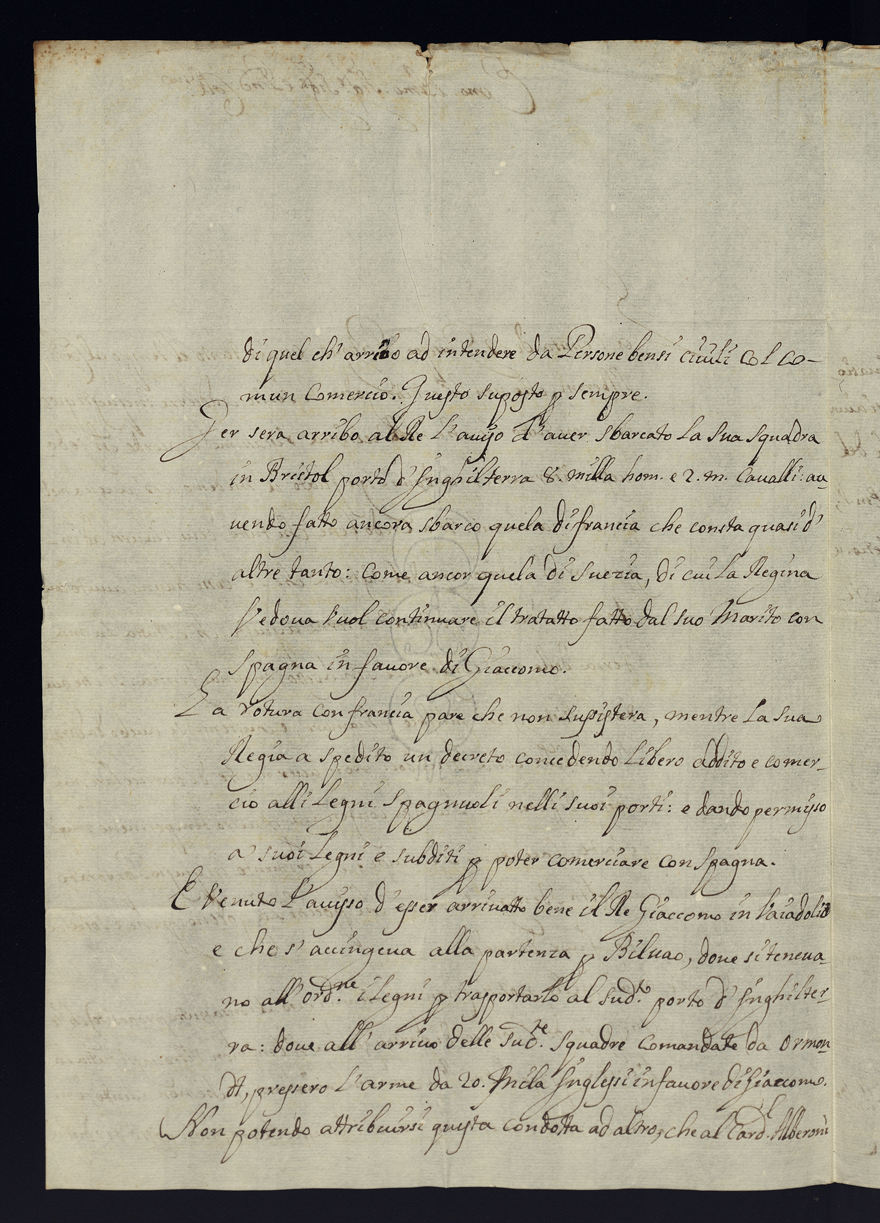 di quel ch' arribo ad intendere da Persone bensi ciuili col co-
mun Comercio. Questo suposto p sempre.
Jer sera arribo al Re l'auiso d'auer sbarcato la sua squadra
in Bristol porto d'Inghilterra 8. milla hom. e 2. m. Caualli: au
uendo fatto ancora sbarco quela di francia che consta quasi d'
altre tanto: come ancor quela di Suezia, di cui la Regina
Vedoua vuol continuare il tratatto fatto dal suo Marito con
Spagna in fauore di Giaccomo.
La rotura con francia pare che non sussistera, mentre la sua
Regia a spedito un decreto concedendo libero addito e comer-
cio alli Legni Spagnuoli nelli suoi porti: e dando permisso
a' suoi Legni e subditi p poter comerciare con Spagna.
E venuto l'auisso d'esser arriuatto bene il Re Giaccomo in Vaiadolid
e che s'accingeua alla partenza p Biluao, doue si teneua
no all'ord.ne i legni p trasportarlo al sud.to porto d'Inghilter-
ra: doue all'arriuo delle sud.te squadre comandate da Ormon
dt, pressero l'arme da 20. Mila Inglessi in fauore di Giaccomo.
Non potendo attribuirsi questa condotta ad altro, che al Card.l Alberoni